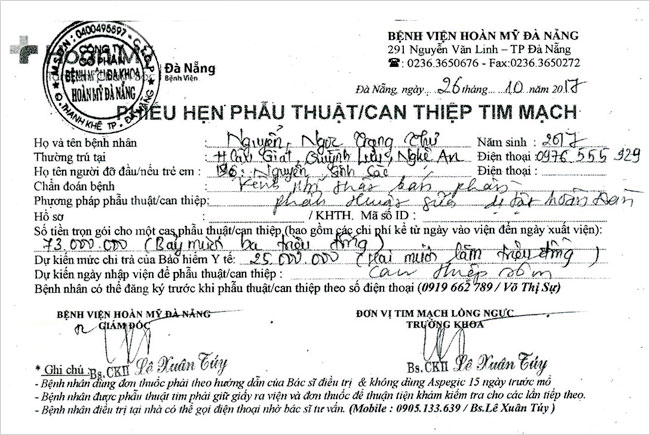 BỆNH VIỆN HOÀN MỸ ĐÀ NẴNG
291 Nguyễn Văn Linh – TP Đà Nẵng
☎: 0236.3650676 - Fax:0236.3650272
M.S.D.N: 0400495597 - C.T.C.P
CÔNG TY
CỔ PHẦN
BỆNH VIỆN ĐA KHOA
HOÀN MỸ ĐÀ NẴNG
Q. THANH KHÊ TP. ĐÀ NẴNG
Đà Nẵng
Bệnh Viện
Đà Nẵng, ngày 26 tháng 10 .2017
PHIẾU HẸN PHẪU THUẬT/CAN THIỆP TIM MẠCH
Họ và tên bệnh nhân : Nguyễn Ngọc Trang Thư Năm sinh : 2017
Thường trú tại : Giát, Quỳnh Lưu, Nghệ An Điện thoại : 0976 555 929
Họ tên người đỡ đầu/nếu trẻ em : Nguyễn Điện thoại :
Chẩn đoán bệnh : bán phần
Phương pháp phẫu thuật/can thiệp: phẫu thuật sửa dị tật hoàn toàn
Hồ sơ : / KHTH. Mã số ID :
Số tiền trọn gói cho một cas phẫu thuật/can thiệp (bao gồm các chi phí kể từ ngày vào viện đến ngày xuất viện):
73.000.000 (Bảy mươi ba triệu đồng)
Dự kiến mức chi trả của Bảo hiểm Y tế: 25.000.000 (Hai mươi lăm triệu đồng)
Dự kiến ngày nhập viện để phẫu thuật/can thiệp : Can thiệp sớm
Bệnh nhân có thể đăng ký trước khi phẫu thuật/can thiệp theo số điện thoại (0919 662 789 / Võ Thị Sự)
BỆNH VIỆN HOÀN MỸ ĐÀ NẴNG
GIÁM ĐỐC
Bs.CKII Lê Xuân Túy
ĐƠN VỊ TIM MẠCH LỒNG NGỰC
TRƯỞNG KHOA
Bs.CKII Lê Xuân Túy
* Ghi chú :
- Bệnh nhân dùng đơn thuốc phải theo hướng dẫn của Bác sĩ điều trị & không dùng Aspegic 15 ngày trước mổ
- Bệnh nhân được phẫu thuật tim phải giữ giấy ra viện và đơn thuốc để thuận tiện khám kiểm tra cho các lần tiếp theo.
- Bệnh nhân điều trị tại nhà có thể gọi điện thoại nhờ bác sĩ tư vấn. (Mobile : 0905.133.639 / Bs.Lê Xuân Túy )